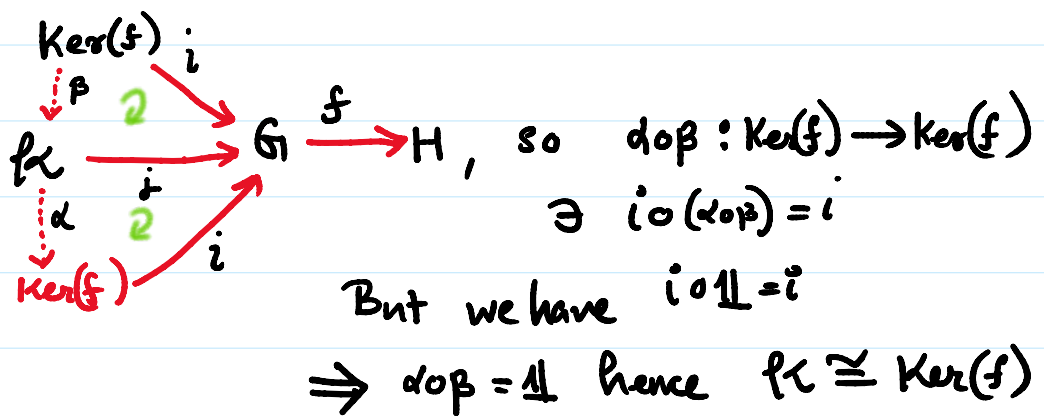 Ker(f) i
β
K j G f H, so α∘β : Ker(f) → Ker(f)
α
∋ i∘(α∘β) = i
Ker(f) i
But we have i∘𝟙 = i
⇒ α∘β = 𝟙 hence K ≅ Ker(f)